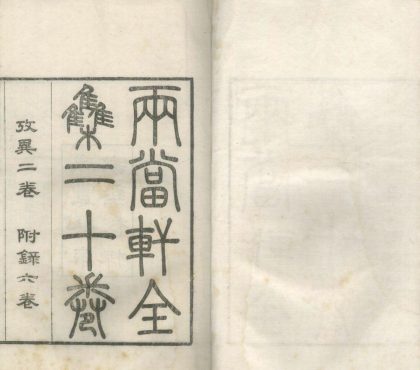 兩當軒全
集二十卷
攷異二卷　附錄六卷